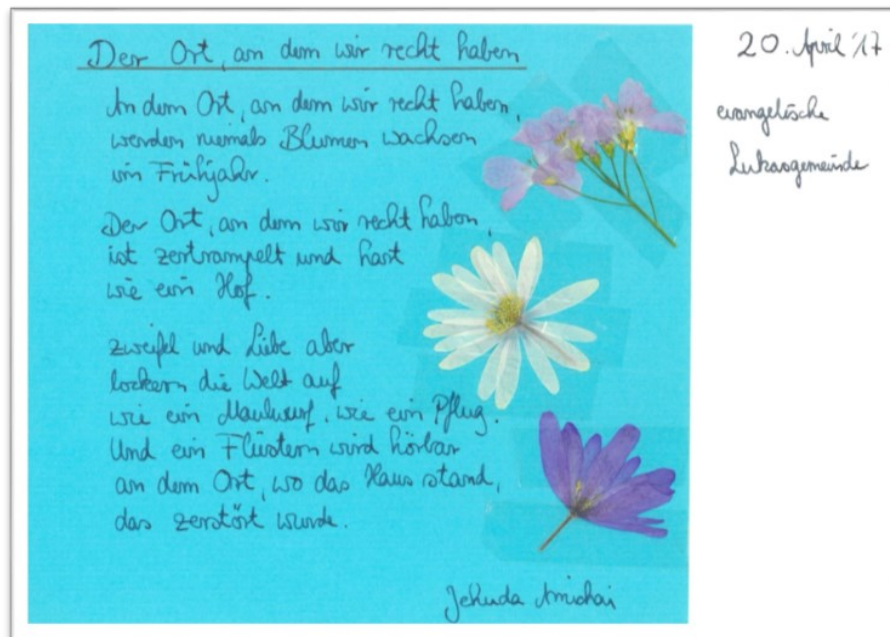 Der Ort, an dem wir recht haben
An dem Ort, an dem wir recht haben,
werden niemals Blumen wachsen
im Frühjahr.
Der Ort, an dem wir recht haben,
ist zertrampelt und hart
wie ein Hof.
Zweifel und Liebe aber
lockern die Welt auf
wie ein Maulwurf, wie ein Pflug.
Und ein Flüstern wird hörbar
an dem Ort, wo das Haus stand,
das zerstört wurde.
Jehuda Amichai
20. April '17
evangelische
Lukasgemeinde